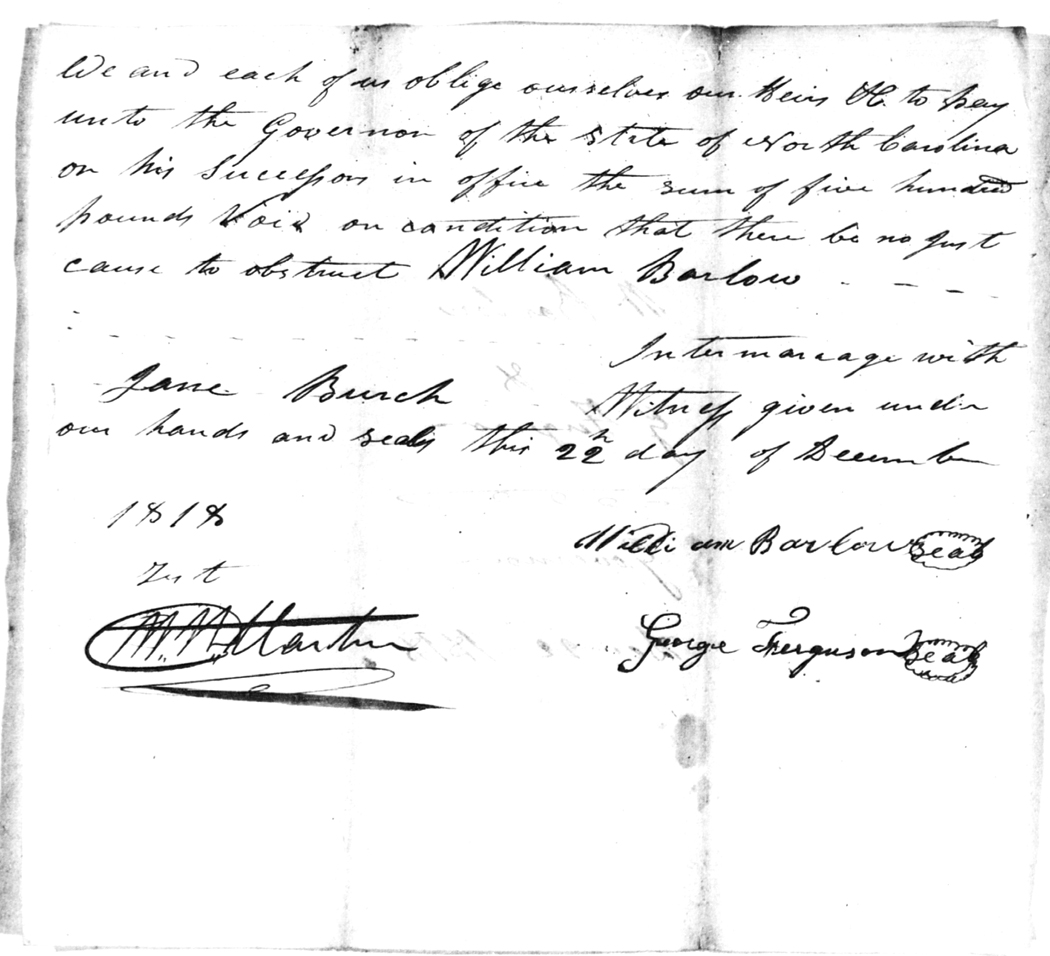 We and each of us oblige ourselves our Heirs &c. to pay
unto the Governor of the State of North Carolina
or his Successors in office the sum of five hundred
pounds Void on condition that there be no just
cause to obstruct William Barlow
Intermarage with
Jane Burch Witness given under
our hands and seals this 22h day of December
1818
Test
William Barlow Seal
George Ferguson Seal
Martin